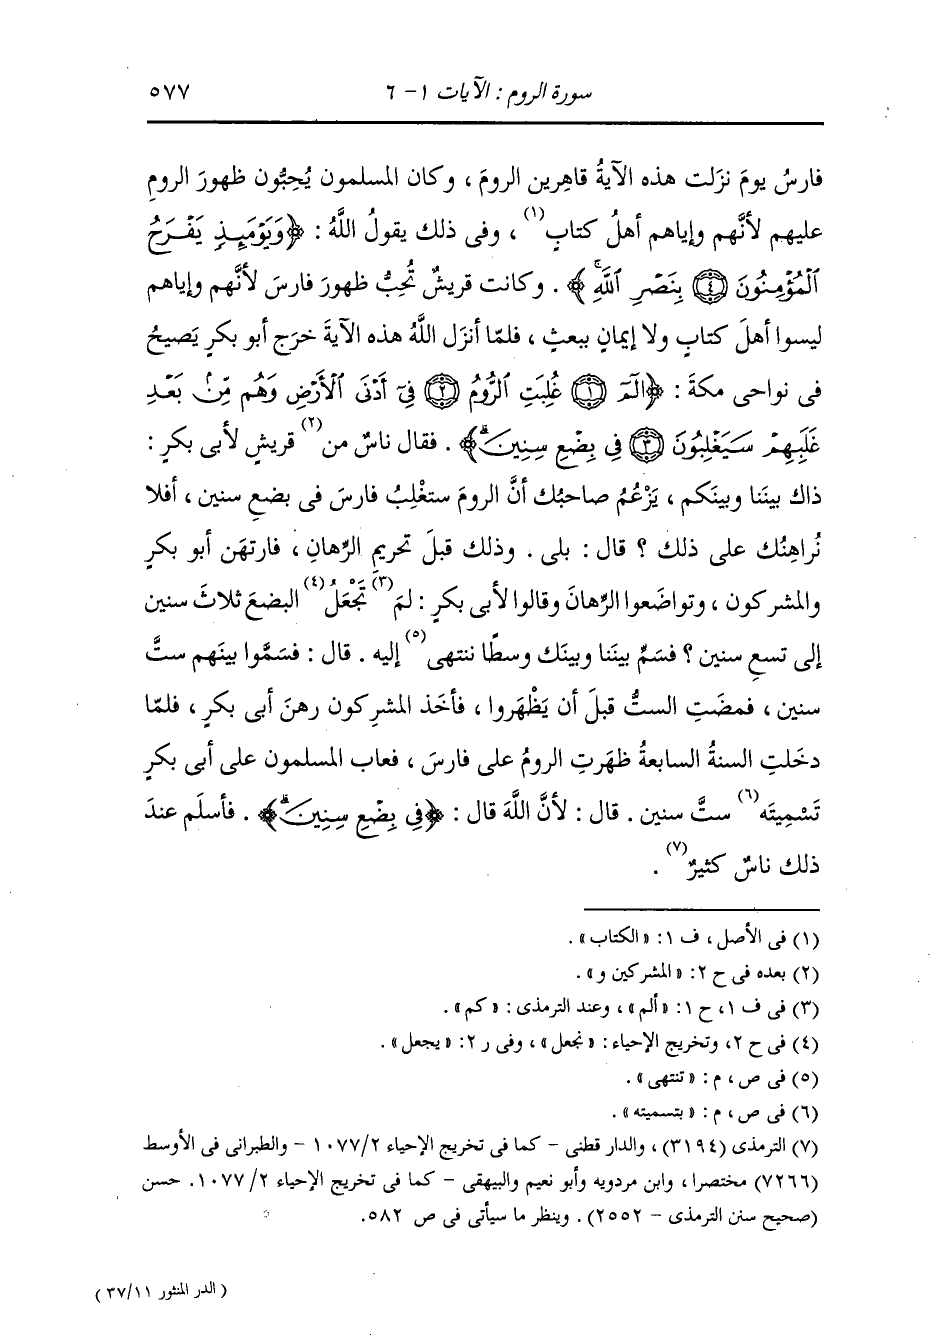 سورة الروم : الآيات ١ - ٦
٥٧٧
فارسُ يومَ نزَلت هذه الآيةُ قاهِرين الرومَ ، وكان المسلمون يُحِبُّون ظهورَ الرومِ
عليهم لأنَّهم وإياهم أهلُ كتابٍ(١) ، وفى ذلك يقولُ اللَّهُ : ﴿وَيَوْمَئِذٍ يَفْرَحُ
ٱلْمُؤْمِنُونَ ۝٤ بِنَصْرِ ٱللَّهِۚ﴾ . وكانت قريشٌ تُحِبُّ ظهورَ فارسَ لأنَّهم وإياهم
ليسوا أهلَ كتابٍ ولا إيمانٍ ببعثٍ ، فلمّا أنزَل اللَّهُ هذه الآيةَ خرَج أبو بكرٍ يَصيحُ
فى نواحى مكةَ : ﴿الٓمٓ ۝١ غُلِبَتِ ٱلرُّومُ ۝٢ فِىٓ أَدْنَى ٱلْأَرْضِ وَهُم مِّنۢ بَعْدِ
غَلَبِهِمْ سَيَغْلِبُونَ ۝٣ فِى بِضْعِ سِنِينَۗ﴾ . فقال ناسٌ من(٢) قريشٍ لأبى بكرٍ :
ذاك بينَنا وبينَكم ، يَزْعُمُ صاحبُك أنَّ الرومَ ستغْلِبُ فارسَ فى بضعِ سنين ، أفلا
نُراهِنُك على ذلك ؟ قال : بلى . وذلك قبلَ تحريمِ الرِّهانِ ، فارتهَن أبو بكرٍ
والمشركون ، وتواضَعوا الرِّهانَ وقالوا لأبى بكرٍ : لمَ(٣) تَجْعَلُ(٤) البضعَ ثلاثَ سنين
إلى تسعِ سنين ؟ فسَمِّ بينَنا وبينَك وسطًا ننتهى(٥) إليه . قال : فسَمَّوا بينَهم ستَّ
سنين ، فمضَتِ الستُّ قبلَ أن يَظْهَروا ، فأخَذ المشرِكون رهنَ أبى بكرٍ ، فلمّا
دخَلتِ السنةُ السابعةُ ظهَرتِ الرومُ على فارسَ ، فعاب المسلمون على أبى بكرٍ
تَسْمِيتَه(٦) ستَّ سنين . قال : لأنَّ اللَّهَ قال : ﴿فِى بِضْعِ سِنِينَۗ﴾ . فأسلَم عندَ
ذلك ناسٌ كثيرٌ(٧) .
(١) فى الأصل ، ف ١ : « الكتاب » .
(٢) بعده فى ح ٢ : « المشركين و » .
(٣) فى ف ١ ، ح ١ : « ألم » ، وعند الترمذى : « كم » .
(٤) فى ح ٢ ، وتخريج الإحياء : « نجعل » ، وفى ر ٢ : « يجعل » .
(٥) فى ص ، م : « تنتهى » .
(٦) فى ص ، م : « بتسميته » .
(٧) الترمذى (٣١٩٤) ، والدار قطنى - كما فى تخريج الإحياء ١٠٧٧/٢ - والطبرانى فى الأوسط
(٧٢٦٦) مختصرا ، وابن مردويه وأبو نعيم والبيهقى - كما فى تخريج الإحياء ١٠٧٧/٢ . حسن
(صحيح سنن الترمذى - ٢٥٥٢) . وينظر ما سيأتى فى ص ٥٨٢ .
( الدر المنثور ٣٧/١١ )